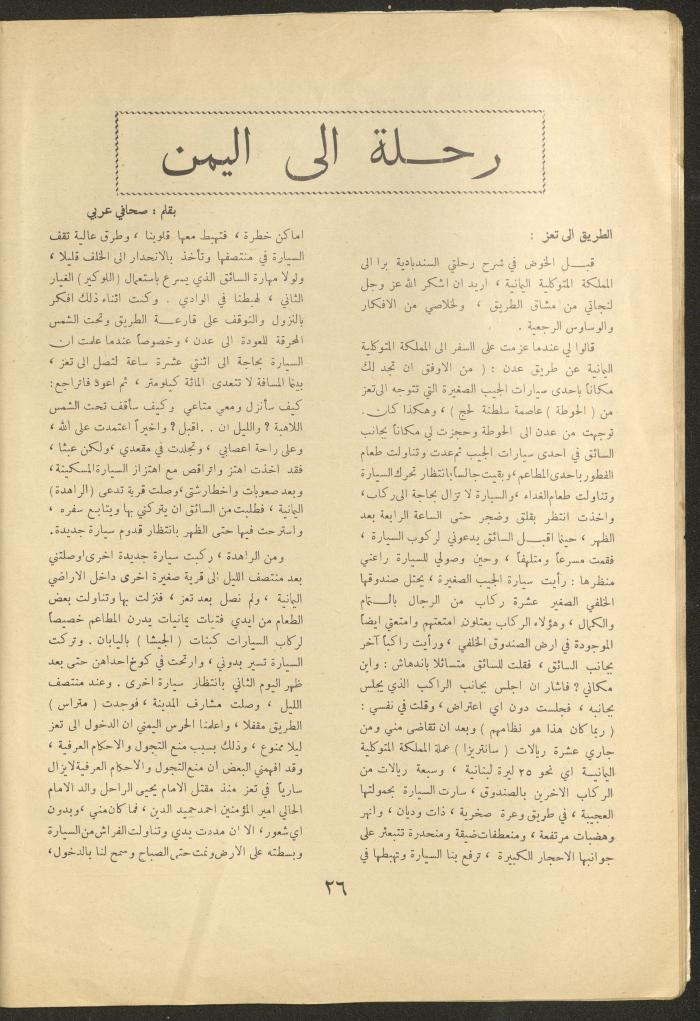 رحلة الى اليمن
بقلم : صحافي عربي
الطريق الى تعز :
قبل الخوض في شرح رحلتي السندبادية برا الى
المملكة المتوكلية اليمانية ، اريد ان اشكر الله عز وجل
لنجاتي من مشاق الطريق ، ولخلاصي من الافكار
والوساوس الرجعية .
قالوا لي عندما عزمت على السفر الى المملكة المتوكلية
اليمانية عن طريق عدن : ( من الاوفق ان تجد لك
مكاناً باحدى سيارات الجيب الصغيرة التي تتوجه الى تعز
من ( الحوطة ) عاصمة سلطنة لحج ) ، وهكذا كان .
توجهت من عدن الى الحوطة وحجزت لي مكاناً بجانب
السائق في احدى سيارات الجيب ثم عدت وتناولت طعام
الفطور باحدى المطاعم ، وبقيت جالساً بانتظار تحرك السيارة
وتناولت طعام الغداء ، والسيارة لا تزال بحاجة الى ركاب ،
واخذت انتظر بقلق وضجر حتى الساعة الرابعة بعد
الظهر ، حينما اقبل السائق يدعوني لركوب السيارة ،
فقمت مسرعاً ومتلهفاً ، وحين وصولي للسيارة راعني
منظرها : رأيت سيارة الجيب الصغيرة ، يحتل صندوقها
الخلفي الصغير عشرة ركاب من الرجال بالتمام
والكمال ، وهؤلاء الركاب يعتلون امتعتهم وامتعتي ايضاً
الموجودة في ارض الصندوق الخلفي ، ورأيت راكباً آخر
بجانب السائق ، فقلت للسائق متسائلا باندهاش : واين
مكاني ? فاشار ان اجلس بجانب الراكب الذي يجلس
بجانبه ، فجلست دون اي اعتراض ، وقلت في نفسي :
( ربما كان هذا هو نظامهم ) وبعد ان تقاضى مني ومن
جاري عشرة ريالات ( سانتريزا ) عملة المملكة المتوكلية
اليمانية اي نحو ٢٥ ليرة لبنانية ، وسبعة ريالات من
الركاب الاخرين بالصندوق ، سارت السيارة بحمولتها
العجيبة ، في طريق وعرة صخرية ، ذات وديان ، وانهر
وهضبات مرتفعة ، ومنعطفات ضيقة ومنحدرة تتبعثر على
جوانبها الاحجار الكبيرة ، ترفع بنا السيارة وتهبطها في
اماكن خطرة ، فتهبط معها قلوبنا ، وطرق عالية تقف
السيارة في منتصفها وتأخذ بالانحدار الى الخلف قليلا ،
ولولا مهارة السائق الذي يسرع باستعمال ( اللوكير ) الغيار
الثاني ، لهبطنا في الوادي . وكنت اثناء ذلك افكر
بالنزول والتوقف على قارعة الطريق وتحت الشمس
المحرقة للعودة الى عدن ، وخصوصاً عندما علمت ان
السيارة بحاجة الى اثنتي عشرة ساعة لتصل الى تعز ،
بينما المسافة لا تتعدى المائة كيلومتر ، ثم اعود فاتراجع :
كيف سأنزل ومعي متاعي وكيف سأقف تحت الشمس
اللاهبة ? والليل ان . . اقبل ? واخيراً اعتمدت على الله ،
وعلى راحة اعصابي ، وتجلدت في مقعدي ، ولكن عبثا ،
فقد اخذت اهتز واتراقص مع اهتزاز السيارة المسكينة ،
وبعد صعوبات واخطار شتى ، وصلت قرية تدعى ( الراهدة )
اليمانية ، فطلبت من السائق ان يتركني بها ويتابع سفره ،
واسترحت فيها حتى الظهر بانتظار قدوم سيارة جديدة .
ومن الراهدة ، ركبت سيارة جديدة اخرى اوصلتني
بعد منتصف الليل الى قرية صغيرة اخرى داخل الاراضي
اليمانية ، ولم نصل بعد تعز ، فنزلت بها وتناولت بعض
الطعام من ايدي فتيات يمانيات يدرن المطاعم خصيصاً
لركاب السيارات كبنات ( الجيشا ) باليابان . وتركت
السيارة تسير بدوني ، وارتحت في كوخ احداهن حتى بعد
ظهر اليوم الثاني بانتظار سيارة اخرى . وعند منتصف
الليل ، وصلت مشارف المدينة ، فوجدت ( متراس )
الطريق مقفلا ، واعلمنا الحرس اليمني ان الدخول الى تعز
ليلا ممنوع ، وذلك بسبب منع التجول والاحكام العرفية ،
وقد افهمني البعض ان منع التجول والاحكام العرفية لايزال
سارياً في تعز منذ مقتل الامام يحيى الراحل والد الامام
الحالي امير المؤمنين احمد حميد الدين ، فما كان مني ، وبدون
اي شعور ، الا ان مددت يدي وتناولت الفراش من السيارة
وبسطته على الارض ونمت حتى الصباح وسمح لنا بالدخول ،
٢٦